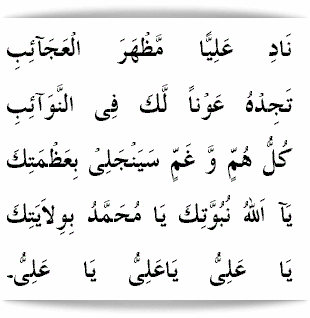 نَادِ عَلِيًّا مَّظْهَرَ الْعَجَآئِبِ
تَجِدْهُ عَوْناً لَّكَ فِى النَّوَآئِبِ
كُلُّ هُمٍّ وَّ غَمٍّ سَيَنْجَلِىْ بِعَظْمَتِكَ
يَآ اَللهُ نُبُوَّتِكَ يَا مُحَمَّدُ بِوِلاَيَتِكَ
يَا عَلِىُّ يَاعَلِىُّ يَا عَلِىُّ۔